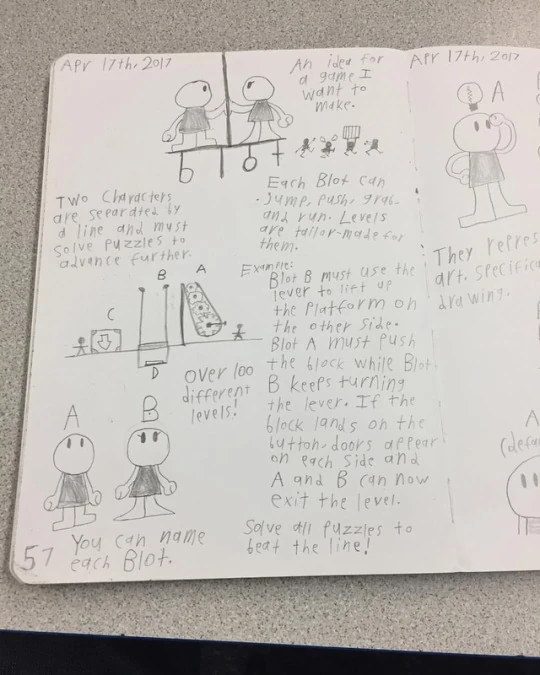 Apr 17th, 2017
An idea for
a game I
want to
make.
blot
Two Characters
are separated by
a line and must
solve puzzles to
advance further.
Each Blot can
jump, push, grab
and run. Levels
are tailor-made for
them.
Example:
Blot B must use the
lever to lift up
the platform on
the other side.
Blot A must push
the block while Blot
B keeps turning
the lever. If the
block lands on the
button, doors appear
on each side and
A and B can now
exit the level.
B
A
C
D
Over 100
different
levels!
A
B
You can name
each Blot.
Solve all puzzles to
beat the line!
57
Apr 17th, 2017
A
They
art.
drawing.
A